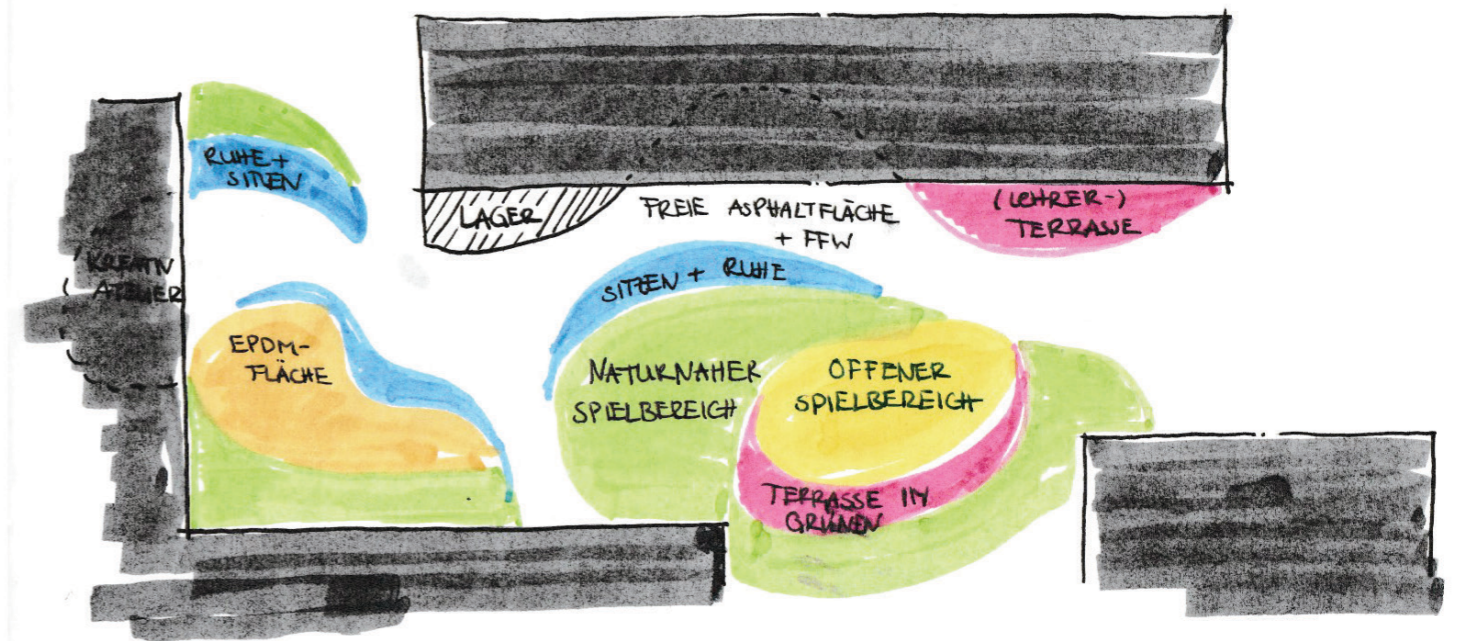 RUHE +
SITZEN
LAGER
FREIE ASPHALTFLÄCHE
+ FFW
(LEHRER-)
TERRASSE
KREATIV
ATELIER
SITZEN + RUHE
EPDM-
FLÄCHE
NATURNAHER
SPIELBEREICH
OFFENER
SPIELBEREICH
TERRASSE IM
GRÜNEN